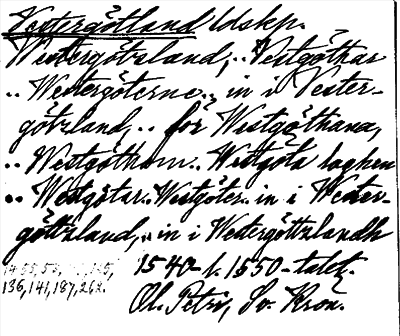 Vestergötland ldskp.
Westergötzland, .. Vestgöthar
.. Westergöterne .. in i Vester-
götzland, .. för Westgöthana,
.. Westgöthom .. Westgöta laghen
.. Westgötar .. Westgöter .. in i Wester-
göttzland, .. in i Westergöttzlandh
1540-t. 1550-talet.
136, 141, 187, 262.
Ol. Petri, Sv. Krön.